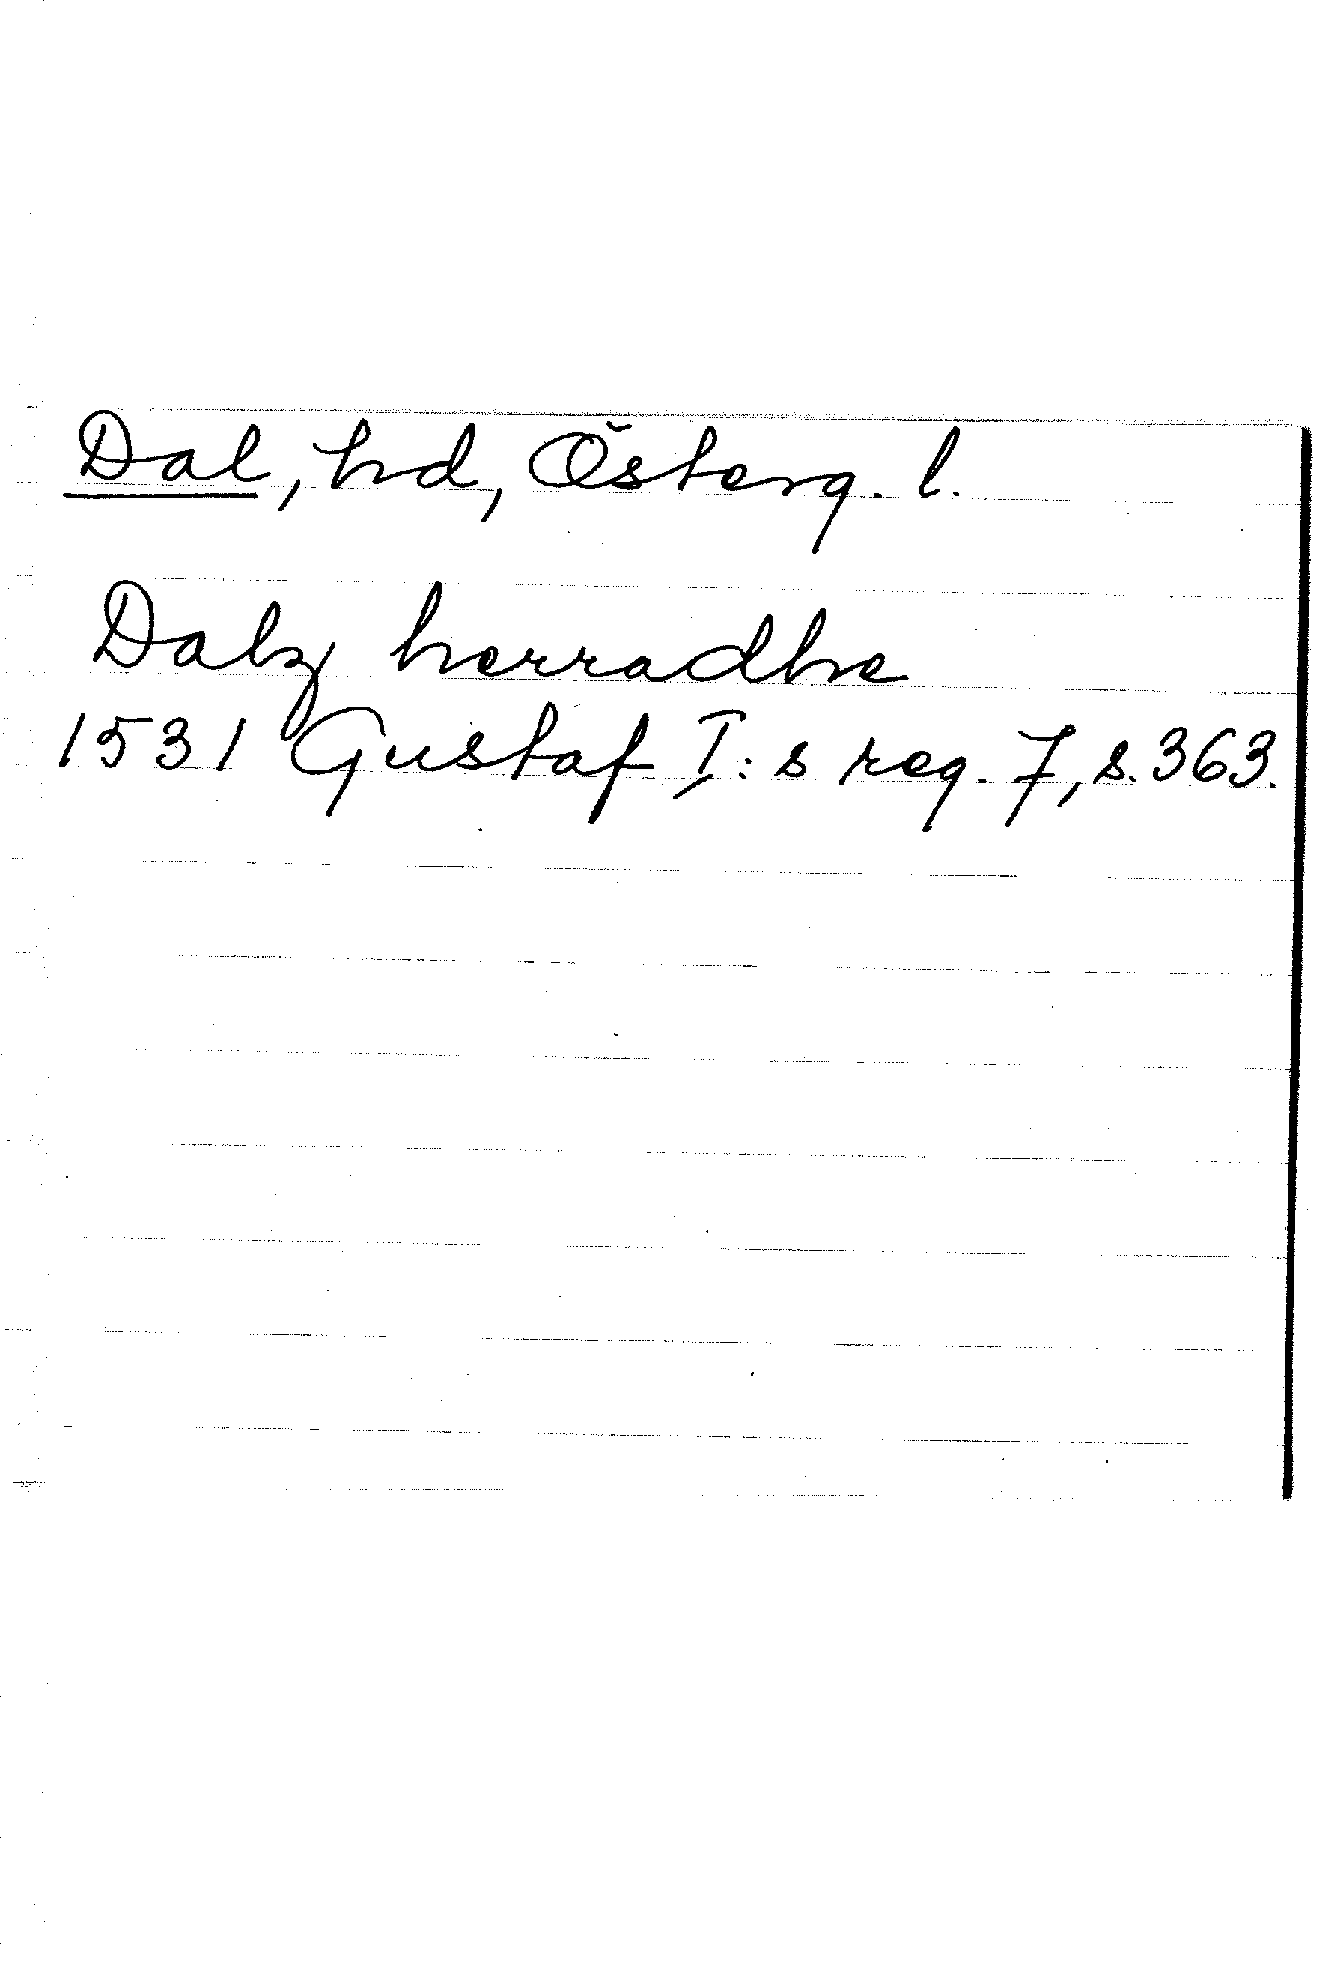 Dal, hd, Österg. l.
Dalz herradhe
1531 Gustaf I:s reg. 7, s. 363.